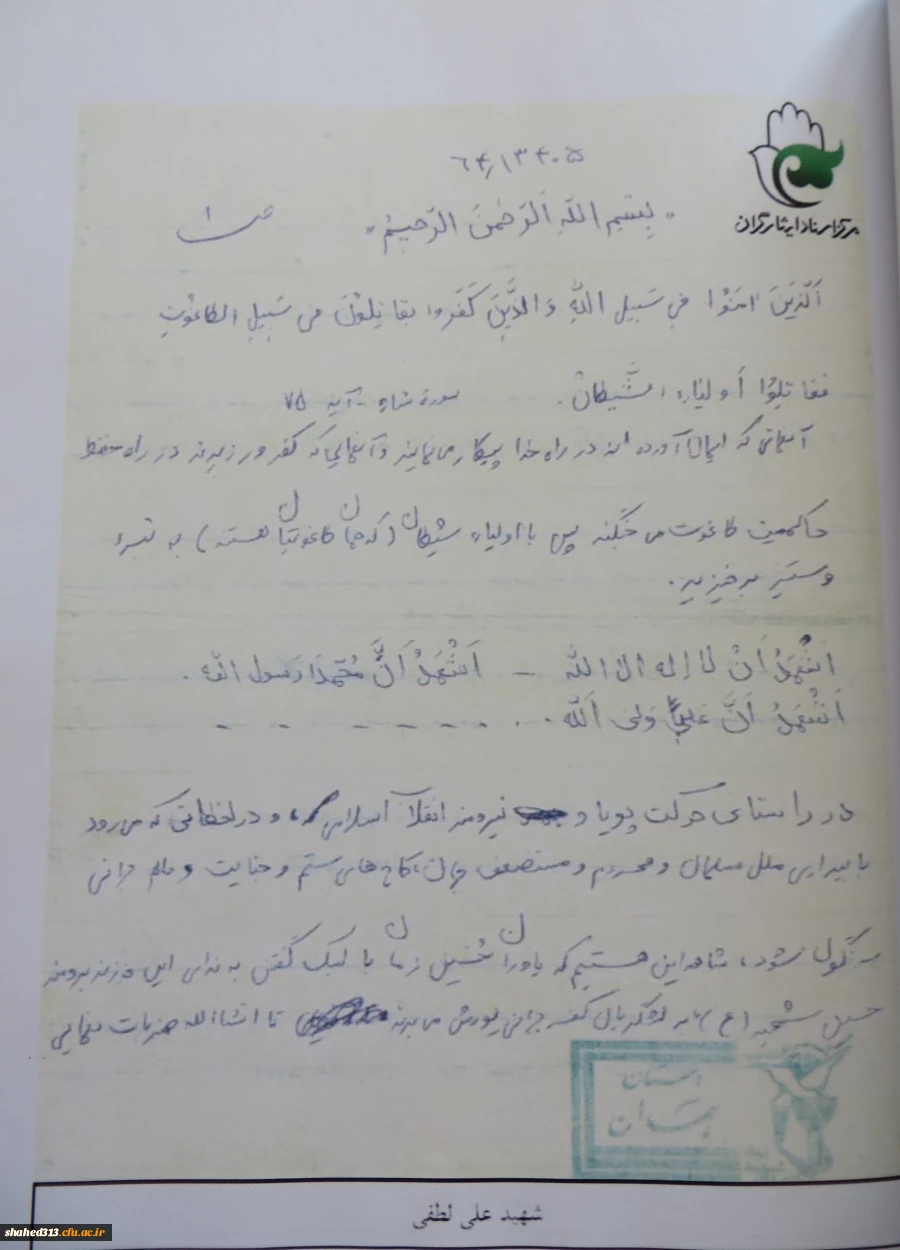 ۶۴/۱۳۴۰۵
مرکز اسناد ایثارگران
ص ۱
«بِسْمِ اللّهِ الرَّحْمنِ الرَّحیمْ»
اَلَّذینَ امَنُوا فی سَبیل اللّهِ وَالَّذینَ کَفَروا یقاتِلوُنَ فی سَبیلِ الطّاغُوتِ
فقاتِلوُا اَولیاء الشَّیطانْ. سورهٔ نساء - آیه ۷۵
آنهائی که ایمان آورده اند در راه خدا پیکار می نمایند و آنهایی که کفر ورزیدند در راه حفظ
حاکمیت طاغوت می جنگند پس با اولیاء شیطان (که همان طاغوتیان هستند) به نبرد
و ستیز برخیزید.
اَشْهَدُ اَنْ لا اله الا الله - اَشْهَدُ اَنَّ مُحَمداً رَسول الله.
اَشْهَدُ اَنَّ عَلیاً وَلی اَللّه
در راستای حرکت پویا و نیرومند انقلاب اسلامی، و در لحظاتی که می رود
با بیداری ملل مسلمان و محروم و مستضعف جهان، کاخ های ستم و جنایت و جهانی
سرنگون شود، شاهد این هستیم که یاوران خمینی زمان با لبیک گفتن به ندای این فرزند برومند
حسین شهید (ع) به لشگریان کفر جهانی یورش می برند تا انشاالله ضربات نهایی
استان
همدان
شهید علی لطفی
shahed313.cfu.ac.ir